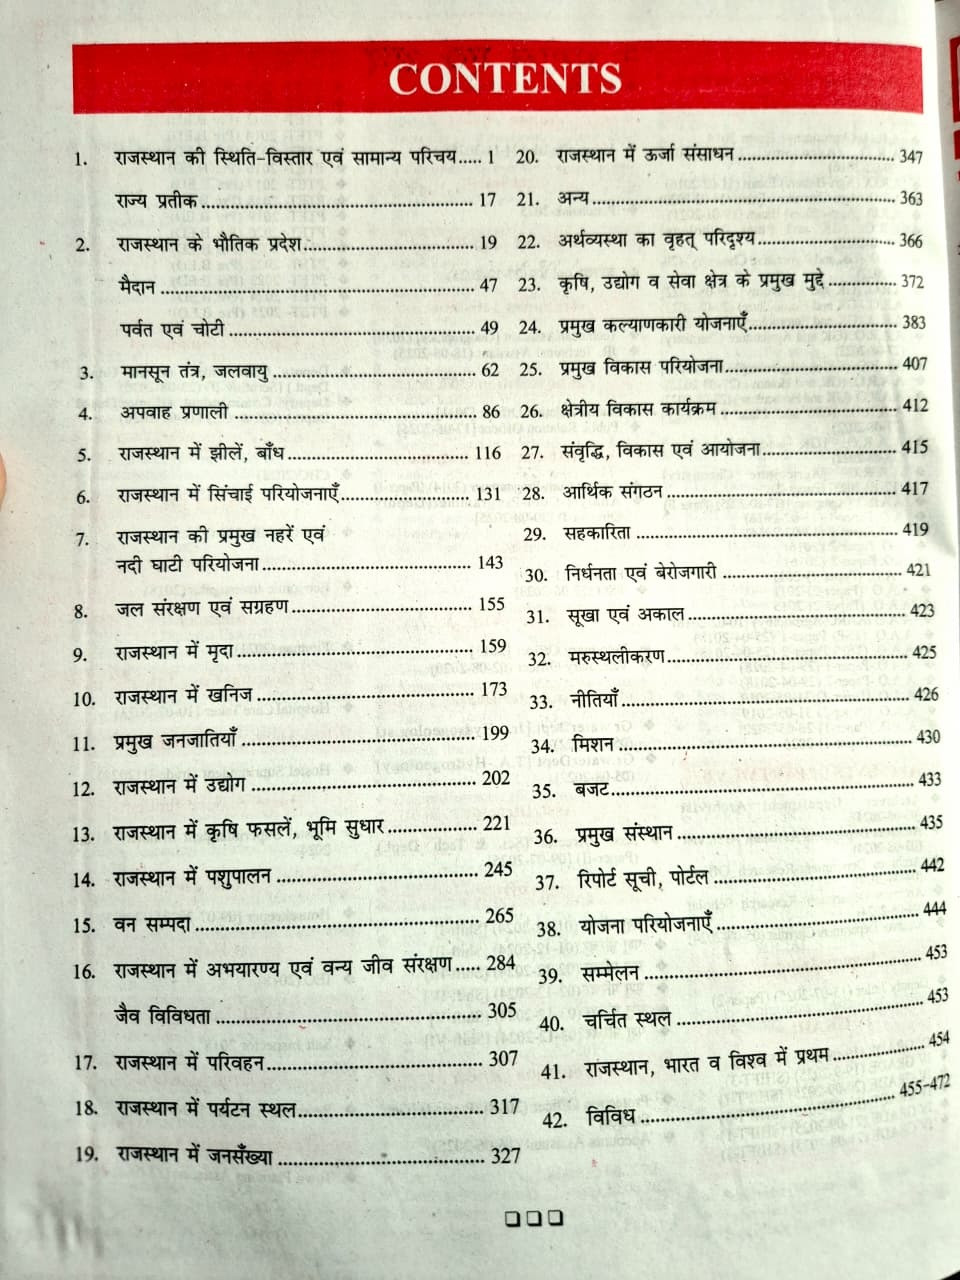 CONTENTS
1. राजस्थान की स्थिति-विस्तार एवं सामान्य परिचय..... 1
राज्य प्रतीक ........ 17
2. राजस्थान के भौतिक प्रदेश........ 19
मैदान ........ 47
पर्वत एवं चोटी ........ 49
3. मानसून तंत्र, जलवायु ........ 62
4. अपवाह प्रणाली ........ 86
5. राजस्थान में झीलें, बाँध........ 116
6. राजस्थान में सिंचाई परियोजनाएँ........ 131
7. राजस्थान की प्रमुख नहरें एवं
नदी घाटी परियोजना........ 143
8. जल संरक्षण एवं सग्रहण........ 155
9. राजस्थान में मृदा ........ 159
10. राजस्थान में खनिज ........ 173
11. प्रमुख जनजातियाँ ........ 199
12. राजस्थान में उद्योग ........ 202
13. राजस्थान में कृषि फसलें, भूमि सुधार........ 221
14. राजस्थान में पशुपालन ........ 245
15. वन सम्पदा ........ 265
16. राजस्थान में अभयारण्य एवं वन्य जीव संरक्षण..... 284
जैव विविधता ........ 305
17. राजस्थान में परिवहन........ 307
18. राजस्थान में पर्यटन स्थल........ 317
19. राजस्थान में जनसँख्या ........ 327
20. राजस्थान में ऊर्जा संसाधन ........ 347
21. अन्य........ 363
22. अर्थव्यस्था का वृहत् परिदृश्य........ 366
23. कृषि, उद्योग व सेवा क्षेत्र के प्रमुख मुद्दे ........ 372
24. प्रमुख कल्याणकारी योजनाएँ........ 383
25. प्रमुख विकास परियोजना........ 407
26. क्षेत्रीय विकास कार्यक्रम ........ 412
27. संवृद्धि, विकास एवं आयोजना........ 415
28. आर्थिक संगठन ........ 417
29. सहकारिता ........ 419
30. निर्धनता एवं बेरोजगारी ........ 421
31. सूखा एवं अकाल........ 423
32. मरुस्थलीकरण........ 425
33. नीतियाँ ........ 426
34. मिशन........ 430
35. बजट........ 433
36. प्रमुख संस्थान ........ 435
37. रिपोर्ट सूची, पोर्टल ........ 442
38. योजना परियोजनाएँ........ 444
39. सम्मेलन ........ 453
40. चर्चित स्थल ........ 453
41. राजस्थान, भारत व विश्व में प्रथम ........ 454
42. विविध ........ 455-472